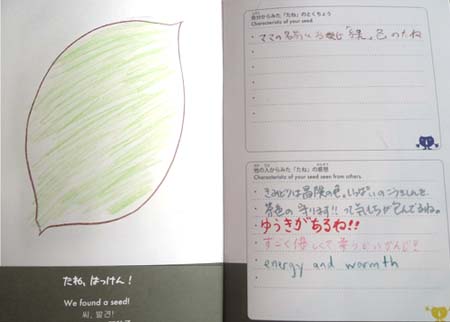 たね、はっけん！
We found a seed!
씨, 발견!
自分からみた「たね」のとくちょう
Characteristic of your seed
ママの名前に
「緑」色のたね
他の人からみた「たね」の感想
Characteristic of your seed seen from others.
きみどりは冒険の色。いっぱいの
茶色の守ります!!って気もちが包んでるね。
ゆうきがあるね!!
すごく優しくて
energy and warmth